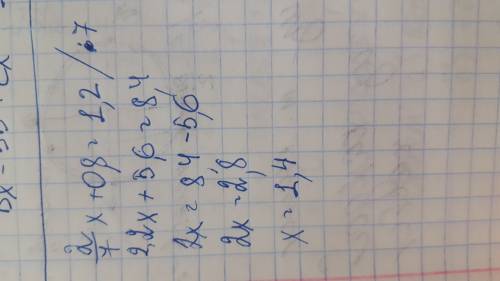 2/7 x + 0,8 = 1,2 / ·7
2,2x + 5,6 = 8,4
2x = 8,4 - 5,6
2x = 2,8
x = 1,4